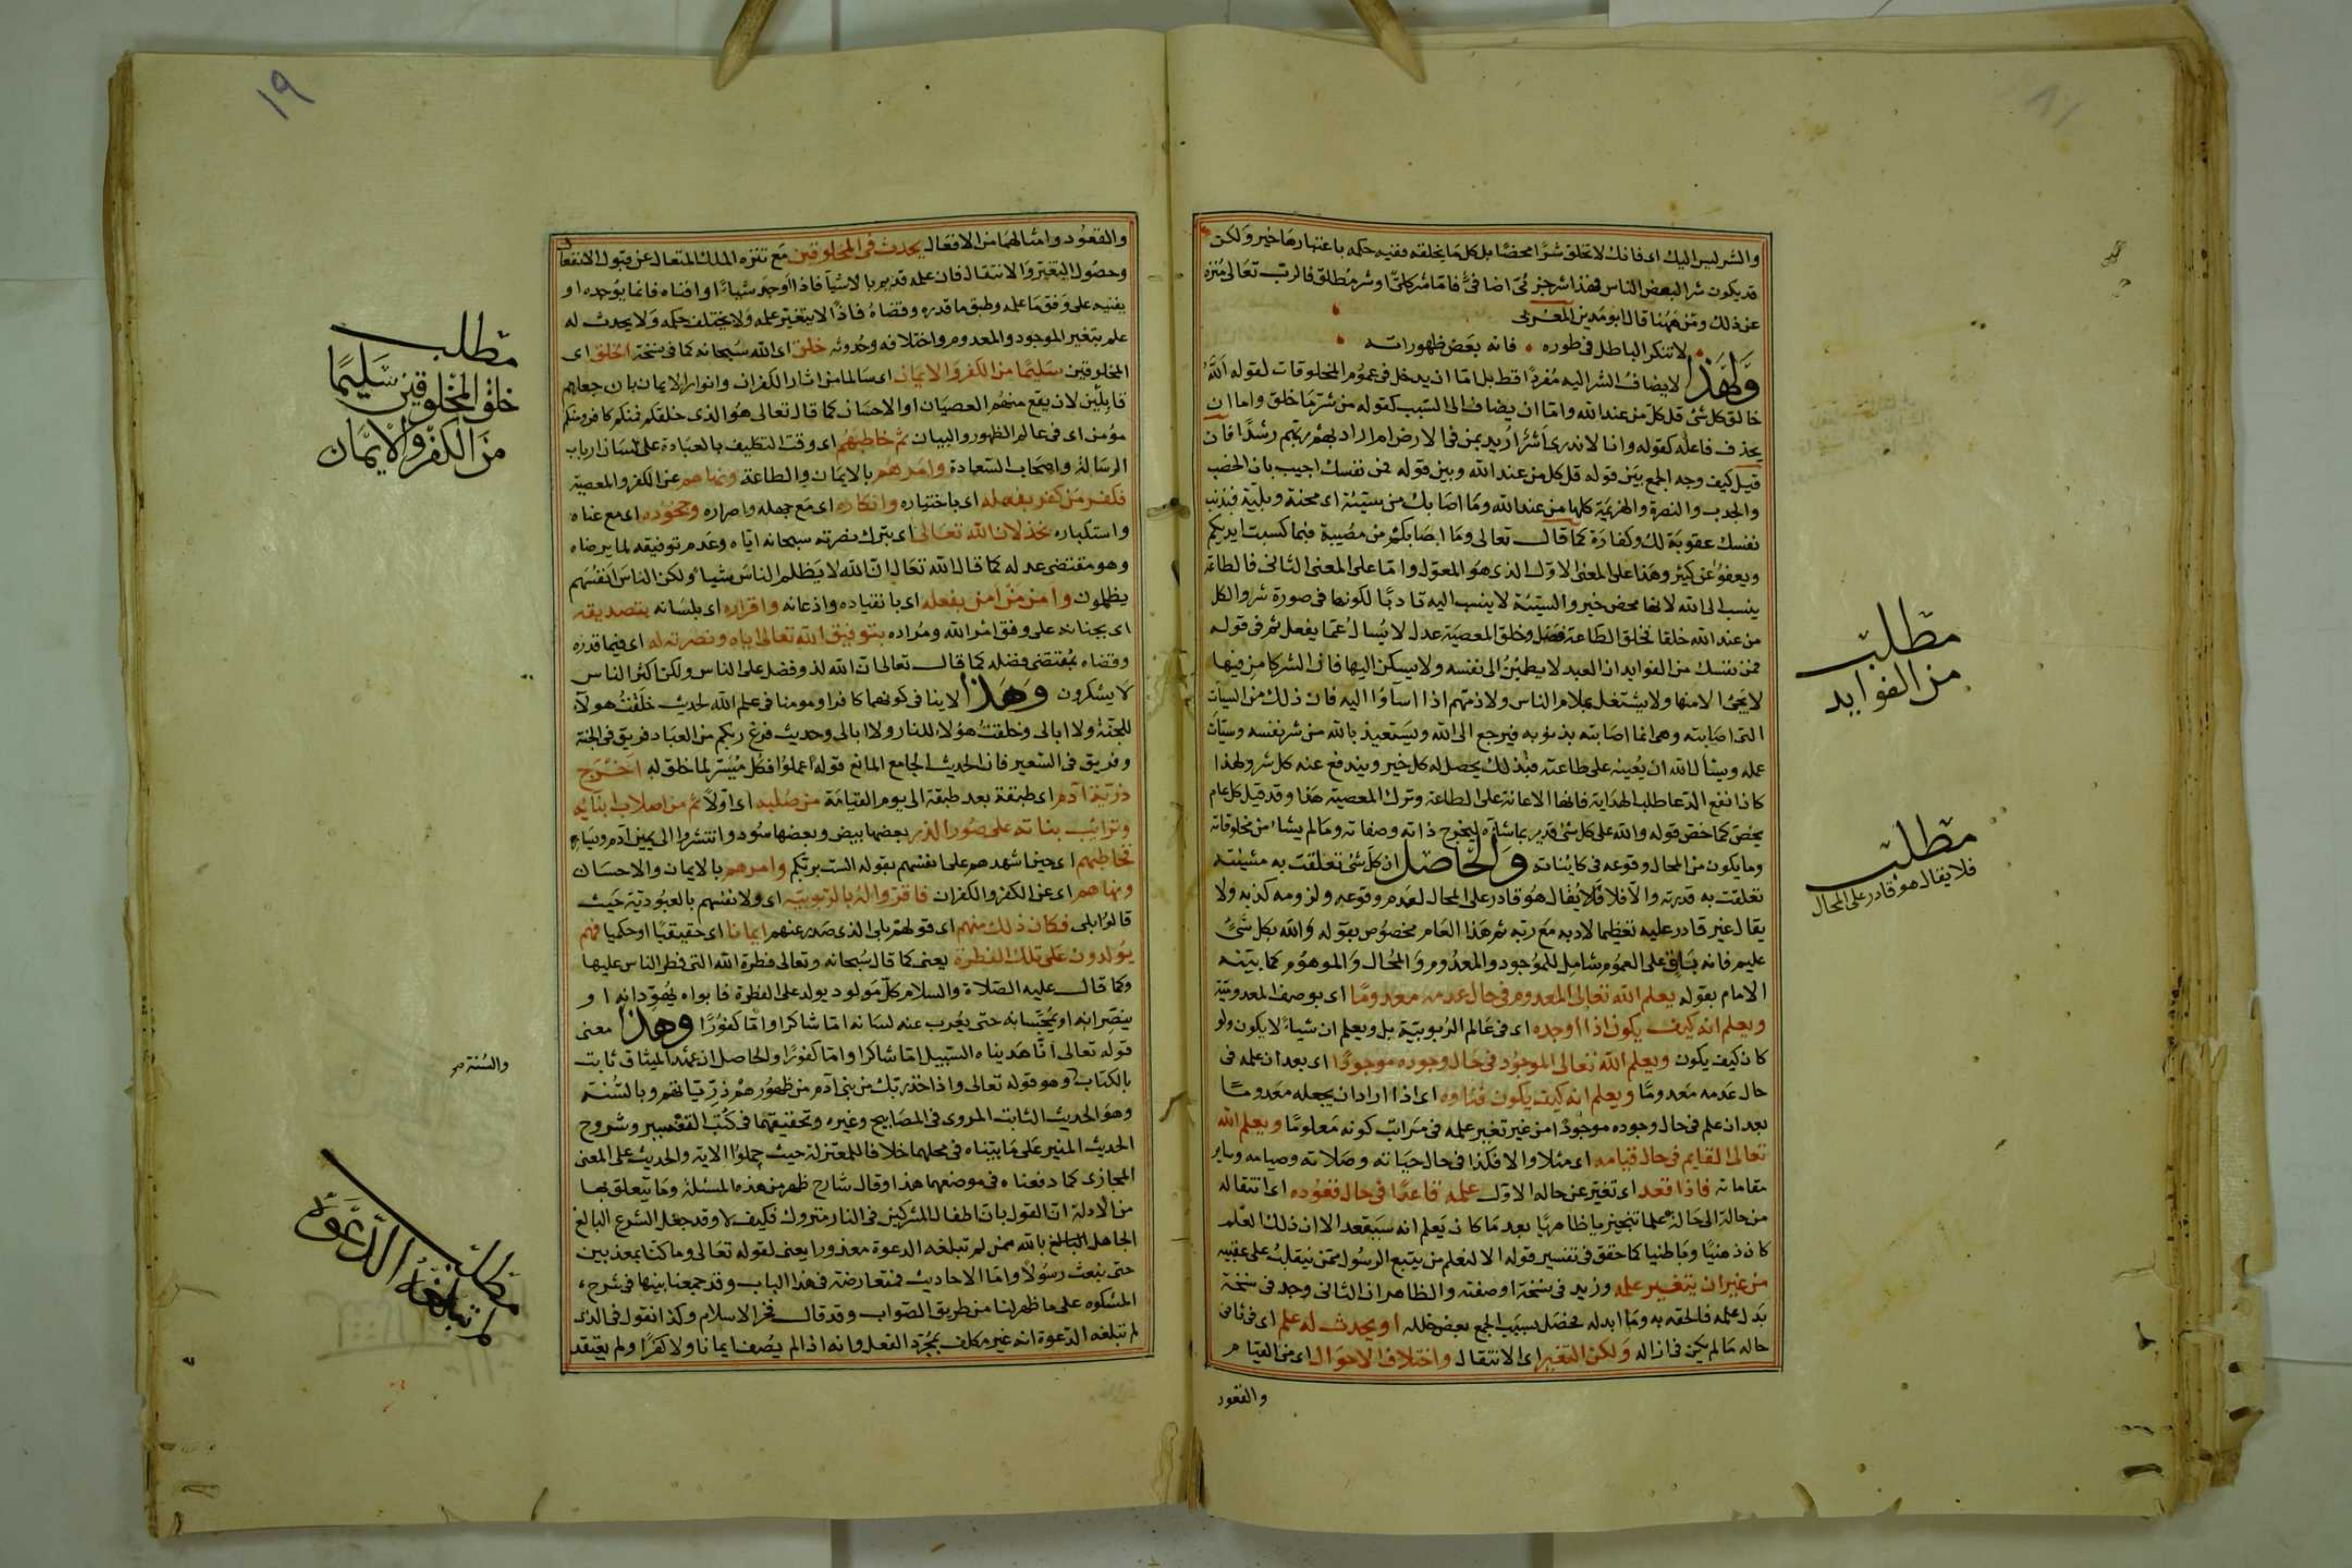 والشر ليس اليك اى فانك لا تخلق شرا محضا بل كل ما يخلقه ففيه حكمه باعتبارها خير ولكن
قد يكون شرا لبعض الناس فهذا شر جزئى اضافى فاما شر كلى او شر مطلق فالرب تعالى منزه
عن ذلك ومن ههنا قال ابو مدين المغربى
لا تنكر الباطل فى طوره • فانه بعض ظهوراته
ولهذا لا يضاف الشر اليه مفردا قط بل اما ان يدخل فى عموم المخلوقات لقوله الله
خالق كل شئ قل كل من عند الله واما ان يضاف الى السبب كقوله من شر ما خلق واما ان
يحذف فاعله كقوله وانا لا ندرى اشر اريد بمن فى الارض ام اراد بهم ربهم رشدا فان
قيل كيف وجه الجمع بين قوله قل كل من عند الله وبين قوله فمن نفسك اجيب بان الخصب
والجدب والنصرة والهزيمة كلها من عند الله وما اصابك من سيئة اى محنة وبلية فبذنب
نفسك عقوبة لك وكفارة كما قال تعالى وما اصابكم من مصيبة فبما كسبت ايديكم
ويعفوا عن كثير وهذا على المعنى الاول الذى هو المعول واما على المعنى الثانى فالطاعة
ينسب الى الله لانها محض خير والسيئة لا ينسب اليه تادبا لكونها فى صورة شر والكل
من عند الله خلقا فخلق الطاعة فضل وخلق المعصية عدل لا يسال عما يفعل ثم فى قوله
فمن نفسك من الفوايد ان العبد لا يطمئن الى نفسه ولا يسكن اليها فان الشر كامن فيها
لا يجئ الا منها ولا يشتغل بملام الناس ولا ذمهم اذا اساؤا اليه فان ذلك من السيآت
التى اصابته وهى انما اصابته بذنوبه فيرجع الى الله ويستعيذ بالله من شر نفسه وسيآت
عمله ويسأل الله ان يعينه على طاعته فبذلك يحصل له كل خير ويندفع عنه كل شر ولهذا
كان انفع الدعا طلب الهداية فانها الاعانة على الطاعة وترك المعصية هذا وقد قيل كل عام
يخص كما خص قوله والله على كل شئ قدير بما شاءه ليخرج ذاته وصفاته وما لم يشاء من مخلوقاته
وما يكون من المحال وقوعه فى كايناته والحاصل ان كل شئ تعلقت به مشيئته
تعلقت به قدرته والا فلا فلا يقال هو قادر على المحال لعدم وقوعه ولزومه كذبه ولا
يقال غير قادر عليه تعظيما لادبه مع ربه ثم هذا العام مخصوص بقوله والله بكل شئ
عليم فانه باق على العموم شامل للموجود والمعدوم والمحال والموهوم كما بينه
الامام بقوله يعلم الله تعالى المعدوم فى حال عدمه معدوما اى بوصف المعدومية
ويعلم انه كيف يكون اذا اوجده اى فى عالم الربوبية بل ويعلم ان شياء لا يكون ولو
كان كيف يكون ويعلم الله تعالى الموجود فى حال وجوده موجودا اى بعد ان علمه فى
حال عدمه معدوما ويعلم انه كيف يكون فناوه اى اذا اراد ان يجعله معدوما
بعد ان علم فى حال وجوده موجودا من غير تغير علمه فى مراتب كونه معلوما ويعلم الله
تعالى القايم فى حال قيامه اى مثلا والا فكذا فى حال حياته وصلاته وصيامه وساير
مقاماته فاذا قعد اى تغير عن حاله الاول علمه قاعدا فى حال قعوده اى انتقاله
من حالة الى حالة علما تنجيزيا ظاهريا بعد ما كان يعلم انه سيقعد الا ان ذلك العلم
كان ذهنيا وباطنيا كما حقق فى تفسير قوله الا لنعلم من يتبع الرسول ممن ينقلب على عقبيه
من غير ان يتغير علمه وزيد فى نسخة اوصفته والظاهر ان الثانى وجد فى نسخة
بدل علمه فالحقه به وما ابدله فحصل بسبب الجمع بعض خلله او يحدث له علم اى فى ثانى
حاله ما لم يكن فى ازاله ولكن التغير اى الانتقال واختلاف الاحوال اى من القيام
والقعود
مطلب
من الفوايد
مطلب
فلا يقال هو قادر على المحال
١٩
والقعود وامثالهما من الافعال يحدث فى المخلوقين مع تنزه الملك المتعال عن قبول الانفعال
وحصول التغير والانتقال فان علمه قديم بالاشيا فاذا اوجد شياء او افناه فانما يوجده او
يفنيه على وفق ما علمه وطبق ما قدره وقضاه فاذا لا يتغير علمه ولا يختلف حكمه ولا يحدث له
علم بتغير الموجود والمعدوم واختلافه وحدوثه خلق اى الله سبحانه كما فى نسخة الخلق اى
المخلوقين سليما من الكفر والايمان اى سالما من اثار الكفران وانوار الايمان بان جعلهم
قابلين لان يقع منهم العصيان او الاحسان كما قال تعالى هو الذى خلقكم فمنكم كافر ومنكم
مؤمن اى فى عالم الظهور والبيان ثم خاطبهم اى وقت التكليف بالعبادة على لسان ارباب
الرسالة واصحاب السعادة وامرهم بالايمان والطاعة ونهاهم عن الكفر والمعصية
فكفر من كفر بفعله اى باختياره وانكاره اى مع جهله واصراره وجحوده اى مع عناده
واستكباره بخذلان الله تعالى اى بترك نصرته سبحانه اياه وعدم توفيقه لما يرضاه
وهو مقتضى عدله كما قال الله تعالى ان الله لا يظلم الناس شيا ولكن الناس انفسهم
يظلمون وامن من امن بفعله اى بانقياده واذعانه واقراره اى بلسانه بتصديقه
اى بجنانه على وفق امر الله ومراده بتوفيق الله تعالى اياه ونصرته له اى فيما قدره
وقضاه بمقتضى فضله كما قال تعالى ان الله لذو فضل على الناس ولكن اكثر الناس
لا يشكرون وهذا لا ينافى كونهما كافرا ومومنا فى علم الله لحديث خلقت هولآء
للجنة ولا ابالى وخلقت هؤلاء للنار ولا ابالى وحديث فرغ ربكم من العباد فريق فى الجنة
وفريق فى السعير فان الحديث الجامع المانع قوله اعملوا فكل ميسر لما خلق له اخرج
ذرية آدم اى طبقة بعد طبقة الى يوم القيامة من صلبه اى اولا ثم من اصلاب ابنائه
وترائب بناته على صور الذر بعضها بيض وبعضها سود وانتشروا الى يمين آدم ويساره
فخاطبهم اى حين اشهدهم على انفسهم بقوله الست بربكم وامرهم بالايمان والاحسان
ونهاهم اى عن الكفر والكفران فاقروا له بالربوبية اى ولانفسهم بالعبودية حيث
قالوا بلى فكان ذلك منهم اى قولهم بلى الذى صدر عنهم ايمانا اى حقيقيا او حكميا فهم
يولدون على تلك الفطرة يعنى كما قال سبحانه وتعالى فطرة الله التى فطر الناس عليها
وكما قال عليه الصلاة والسلام كل مولود يولد على الفطرة فابواه يهودانه او
ينصرانه او يمجسانه حتى يعرب عنه لسانه اما شاكرا واما كفورا وهذا معنى
قوله تعالى انا هديناه السبيل اما شاكرا واما كفورا والحاصل ان عهد الميثاق ثابت
بالكتاب وهو قوله تعالى واذ اخذ ربك من بنى آدم من ظهورهم ذرياتهم وبالسنة
وهو الحديث الثابت المروى فى المصابيح وغيره وتحقيقهما فى كتب التفسير وشروح
الحديث المنير على ما بيناه فى محلهما خلافا للمعتزلة حيث حملوا الاية والحديث على المعنى
المجازى كما دفعناه فى موضعهما هذا وقال شارح ظهر من هذه المسئلة وما يتعلق بها
من الادلة ان القول بان اطفال المشركين فى النار متروك فكيف لا وقد جعل الشرع البالغ
الجاهل بالله ممن لم تبلغه الدعوة معذورا يعنى لقوله تعالى وما كنا معذبين
حتى نبعث رسولا واما الاحاديث فمتعارضة فى هذا الباب وقد جمعنا بينها فى شرح
المشكوه على ما ظهر لنا من طريق الصواب وقد قال فخر الاسلام وكذا نقول فى الذى
لم تبلغه الدعوة انه غير مكلف بمجرد العقل وانه اذا لم يصف ايمانا ولا كفرا ولم يعتقد
مطلب
خلق المخلوقين سليما
من الكفر والايمان
والسنة
مطلب
لم تبلغه الدعوة